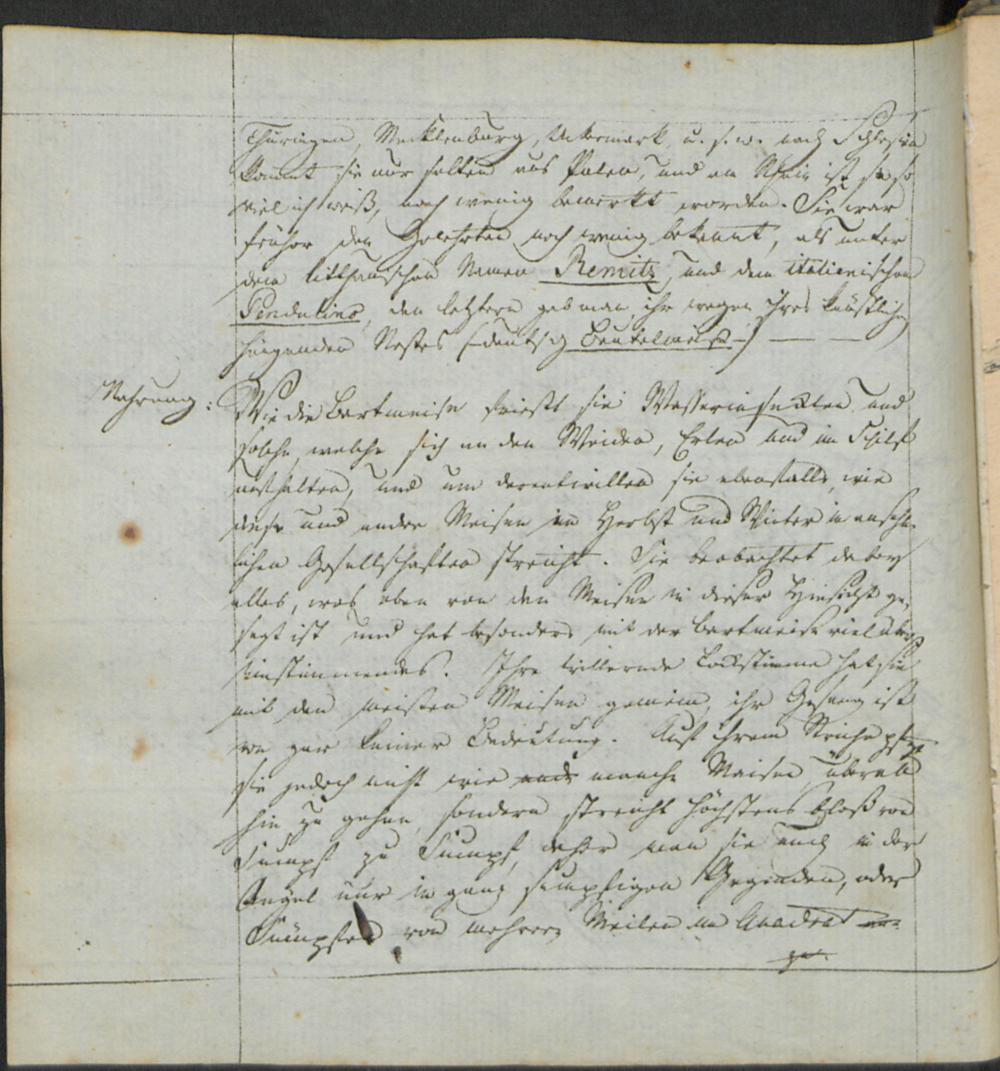 Thüringen, Mecklenburg, Uckermark, u. s. w. nach Schlesien
kommt sie nur selten aus Polen, und am Rhein ist sie so
viel ich weiß, noch wenig bemerkt worden. Sie war
früher den Gelehrten noch wenig bekannt, als unter
dem litthauischen Namen Remitz, und dem italienischen
Pendulino, den letztern gab man ihr wegen ihres künstlichen
hängenden Nestes (deutsch Beutelmeise) — —
Nahrung: Wie die Bartmeise frießt sie Wasserinsekten und
solche, welche sich an den Weiden, Erlen und im Schilf
aufhalten, und um derentwillen sie ebenfalls, wie
diese und andre Meisen im Herbst und Winter in ansehn-
lichen Gesellschaften streicht. Sie beobachtet dabey
alles, was oben von den Meisen in dieser Hinsicht ge-
sagt ist und hat besonders mit der Bartmeise viel über-
einstimmendes. Ihre trillernde Lockstimme hat sie
mit den meisten Meisen gemein, ihr Gesang ist
von gar keiner Bedeutung. Auf ihrem Striche pflegt
sie jedoch nicht wie and manche Meisen überall
hin zu gehen, sondern streicht höchstens bloß von
Sumpf zu Sumpf, daher man sie auch in der
Regel nur in ganz sumpfigen Gegenden, oder
Sümpfen von mehrern Meilen im Quadrat an-